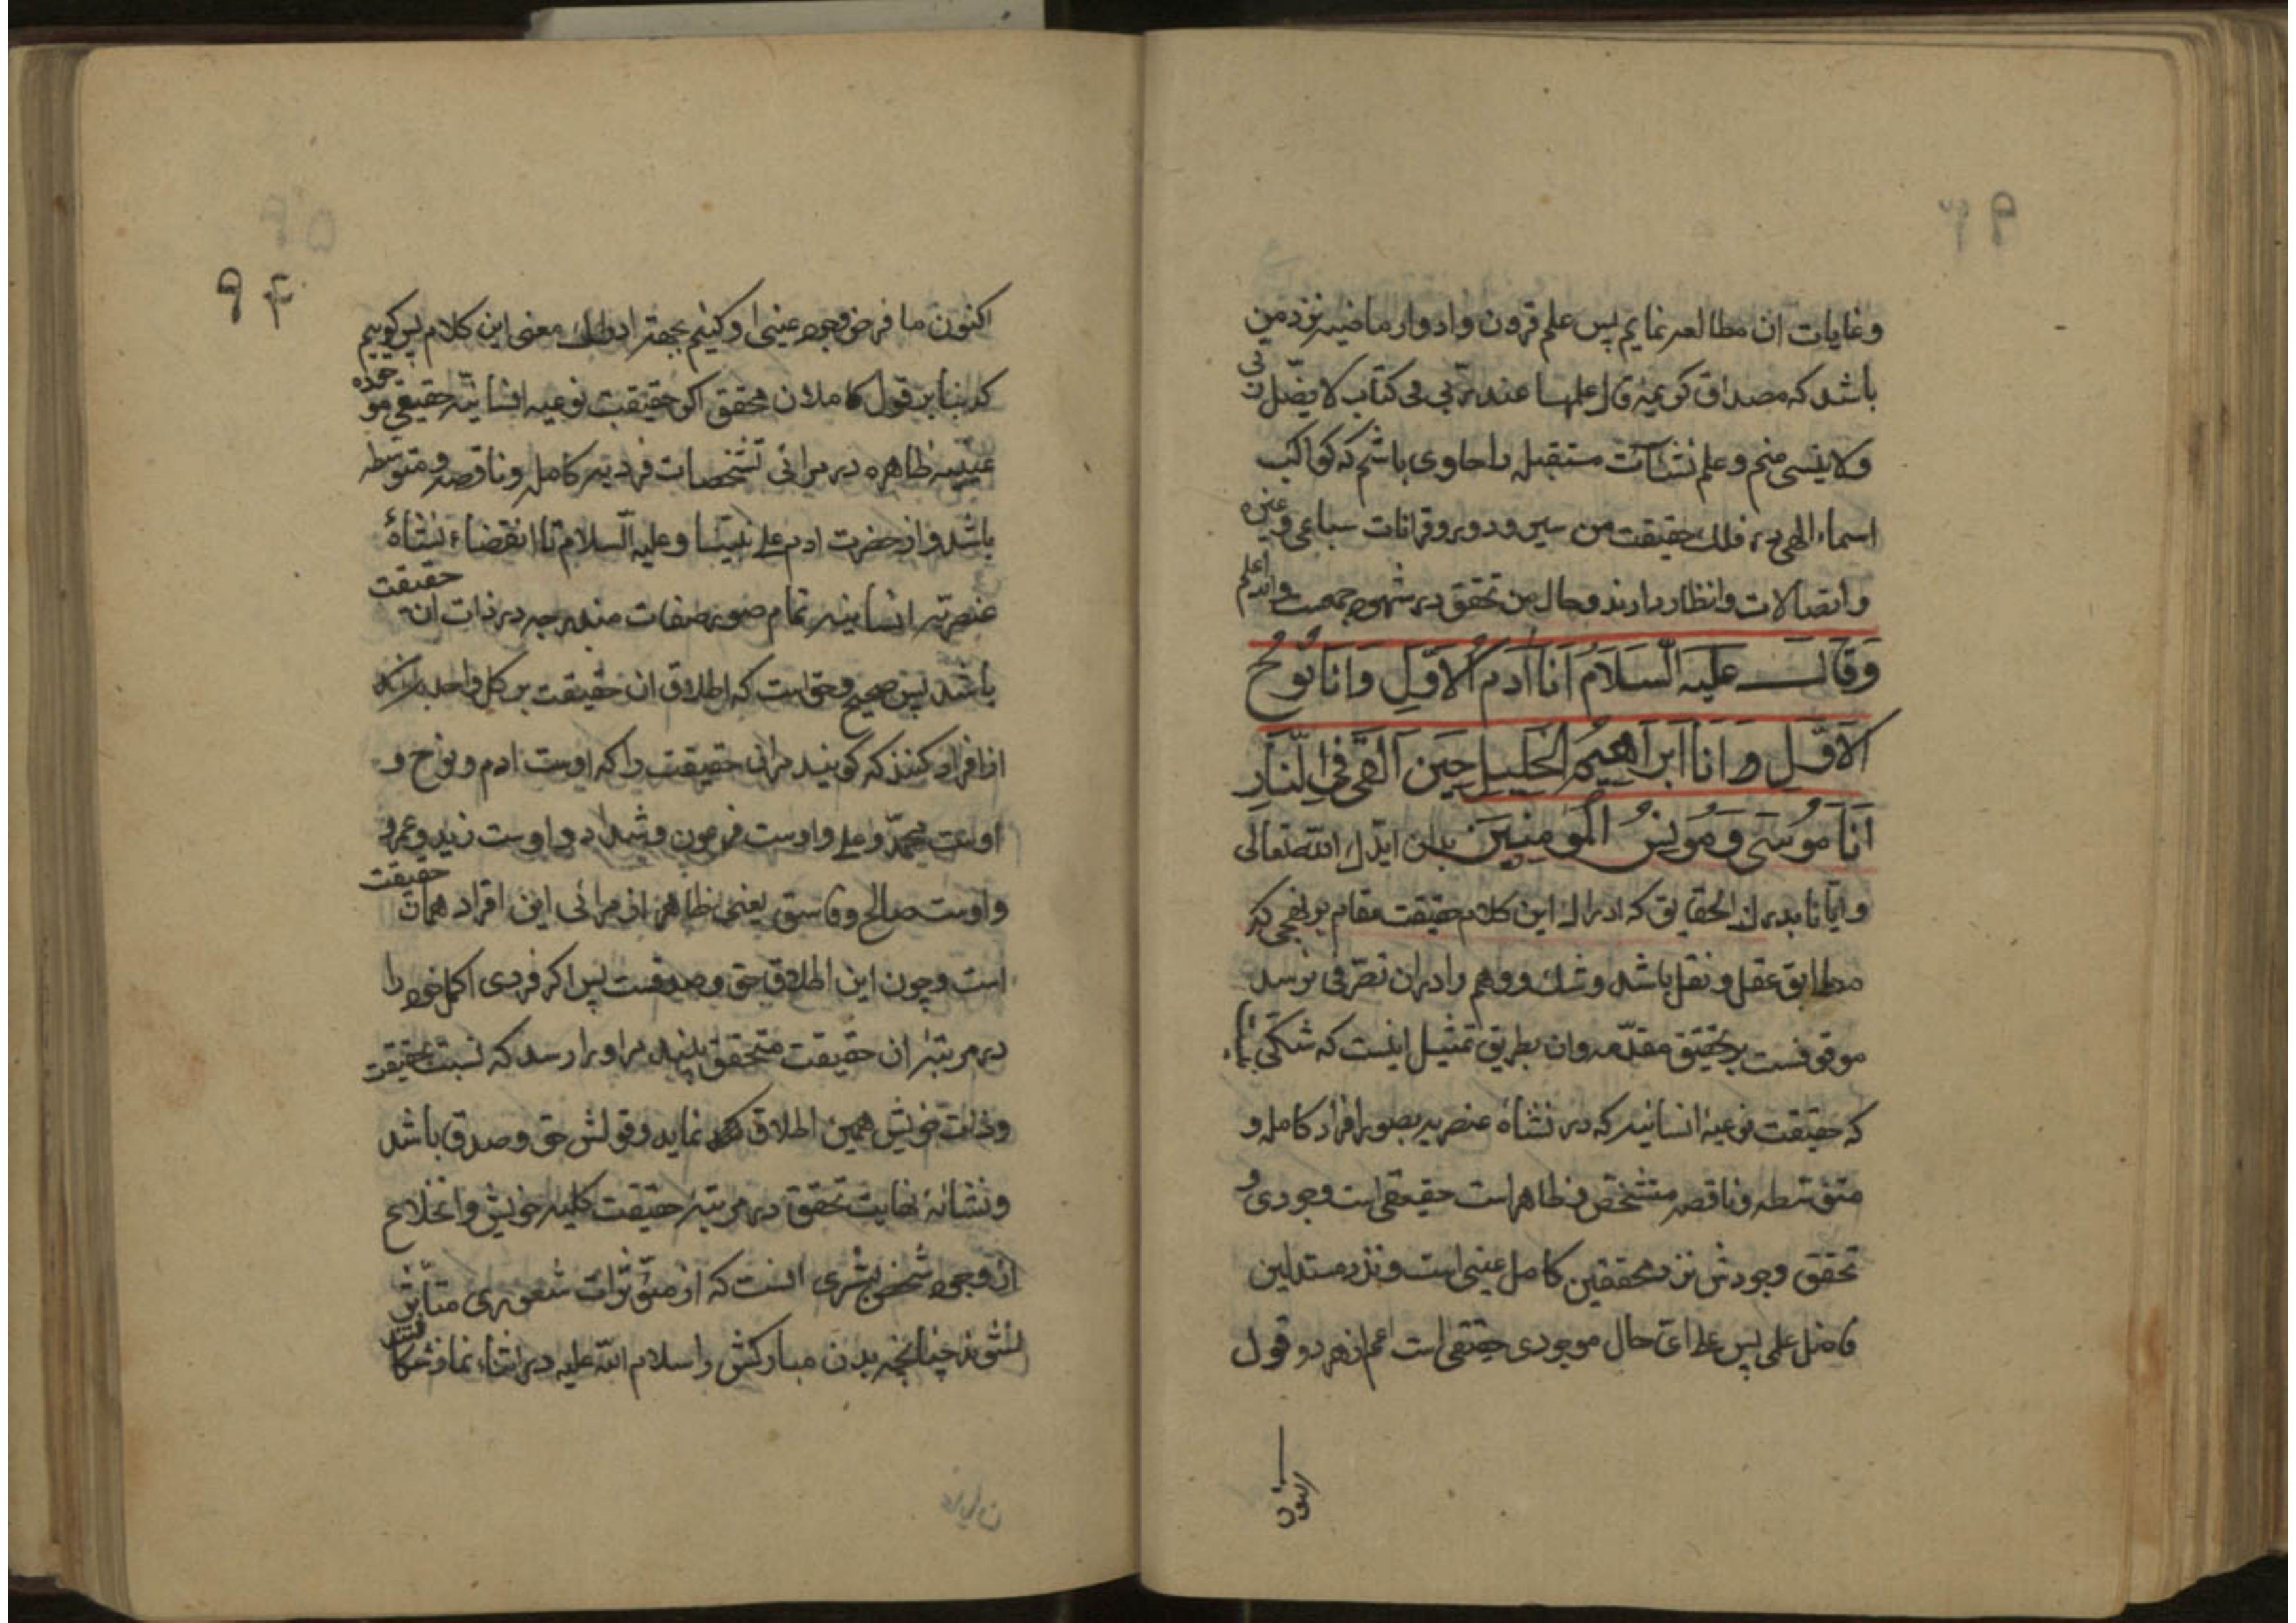 وغایات ان مطالعه نمایم پس علم قرون وادوار ماضیه نزد من
باشد که مصداق کریمه قال علمها عند ربی فی کتاب لا یضل ربی
ولا ینسی منم وعلم نشاآت مستقبله را حاوی باشم که کواکب
اسماء الهی در فلک حقیقت من سیر ودور وقرانات سباعی وغیره
واتصالات وانظار دارند وحال من تحقق در شهود جمعست والله اعلم
وَقَالَ عَلَیه الَّسَلاَمُ اَنَا اَدَمُ الاَوَّلِ وَاَنَا نُوحُ
الاَوَّلِ وَاَنَا اَبرَاهیمُ الخَلِیلِ حِینَ اَلقَی فِی الَّنَارِ
اَنَا مُوسَی وَمُونِسُ المُومِنِینَ بدان ایدک الله تعالی
وایانا بدرک الحقایق که ادراک این کلام حقیقت مقام بر نهجی که
مطابق عقل ونقل باشد وشک ووهم را در ان تصرفی نرسد
موقوفست بر تحقیق مقدمه وان بطریق تمثیل اینست که شکی نیست
که حقیقت نوعیهٔ انسانیه که در نشاهٔ عنصریه بصور افراد کامله و
متوسطه وناقصه متشخص وظاهر است حقیقی است وجودی و
تحقق وجودش نزد محققین کامل عینی است ونزد مستدلین
فاضل علمی پس علی ای حال موجودی حقیقی است اعم از هر دو قول
اکنون
۹۴
اکنون ما فرض وجود عینی او کنیم بجهة ادراک معنی این کلام پس کوییم
که بنابر قول کاملان محقق اکر حقیقت نوعیه انسانیه حقیقی موجوده
عینیه ظاهره در مرائی تشخصات فردیه کامله وناقصه ومتوسطه
باشد واز حضرت ادم علی نبینا وعلیه السلام تا انقضاء نشاهٔ
عنصریه انسانیه تمام صور صفات مندرجه در ذات ان حقیقت
باشد پس صحیح وحق است که اطلاق ان حقیقت بر کل واحد
از افراد کنند که کویند مر ان حقیقت را که اوست ادم ونوح و
اوست محمد وعلی واوست فرعون وشداد واوست زید وعمرو
واوست صالح وفاسق یعنی ظاهر از مرائی این افراد همان حقیقت
است وچون این اطلاق حق وصدقست پس اکر فردی اکمل خود را
در مرتبهٔ ان حقیقت متحقق بیند مر او را رسد که نسبت بحقیقت
وذات خویش همین اطلاق نماید وقولش حق وصدق باشد
ونشانهٔ نهایت تحقق در مرتبهٔ حقیقت کلیه خویش وانخلاع
از وجود شخص بشری انست که از موثرات شعوری متاثر
نشوند چنانچه بدن مبارکش را سلام الله علیه در اثناء نماز